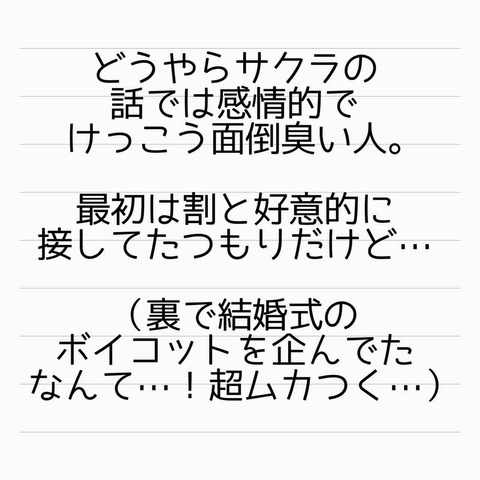 どうやらサクラの
話では感情的で
けっこう面倒臭い人。
最初は割と好意的に
接してたつもりだけど…
（裏で結婚式の
ボイコットを企んでた
なんて…！超ムカつく…）